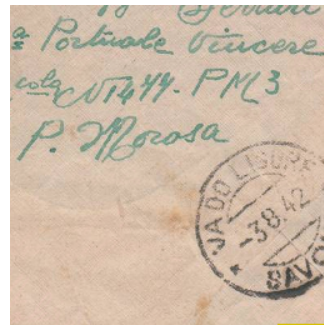 a Portuale Vincere
cola N1477. PM3
P. Morosa
* JADO LIGURE
-3.8.42
SAVO